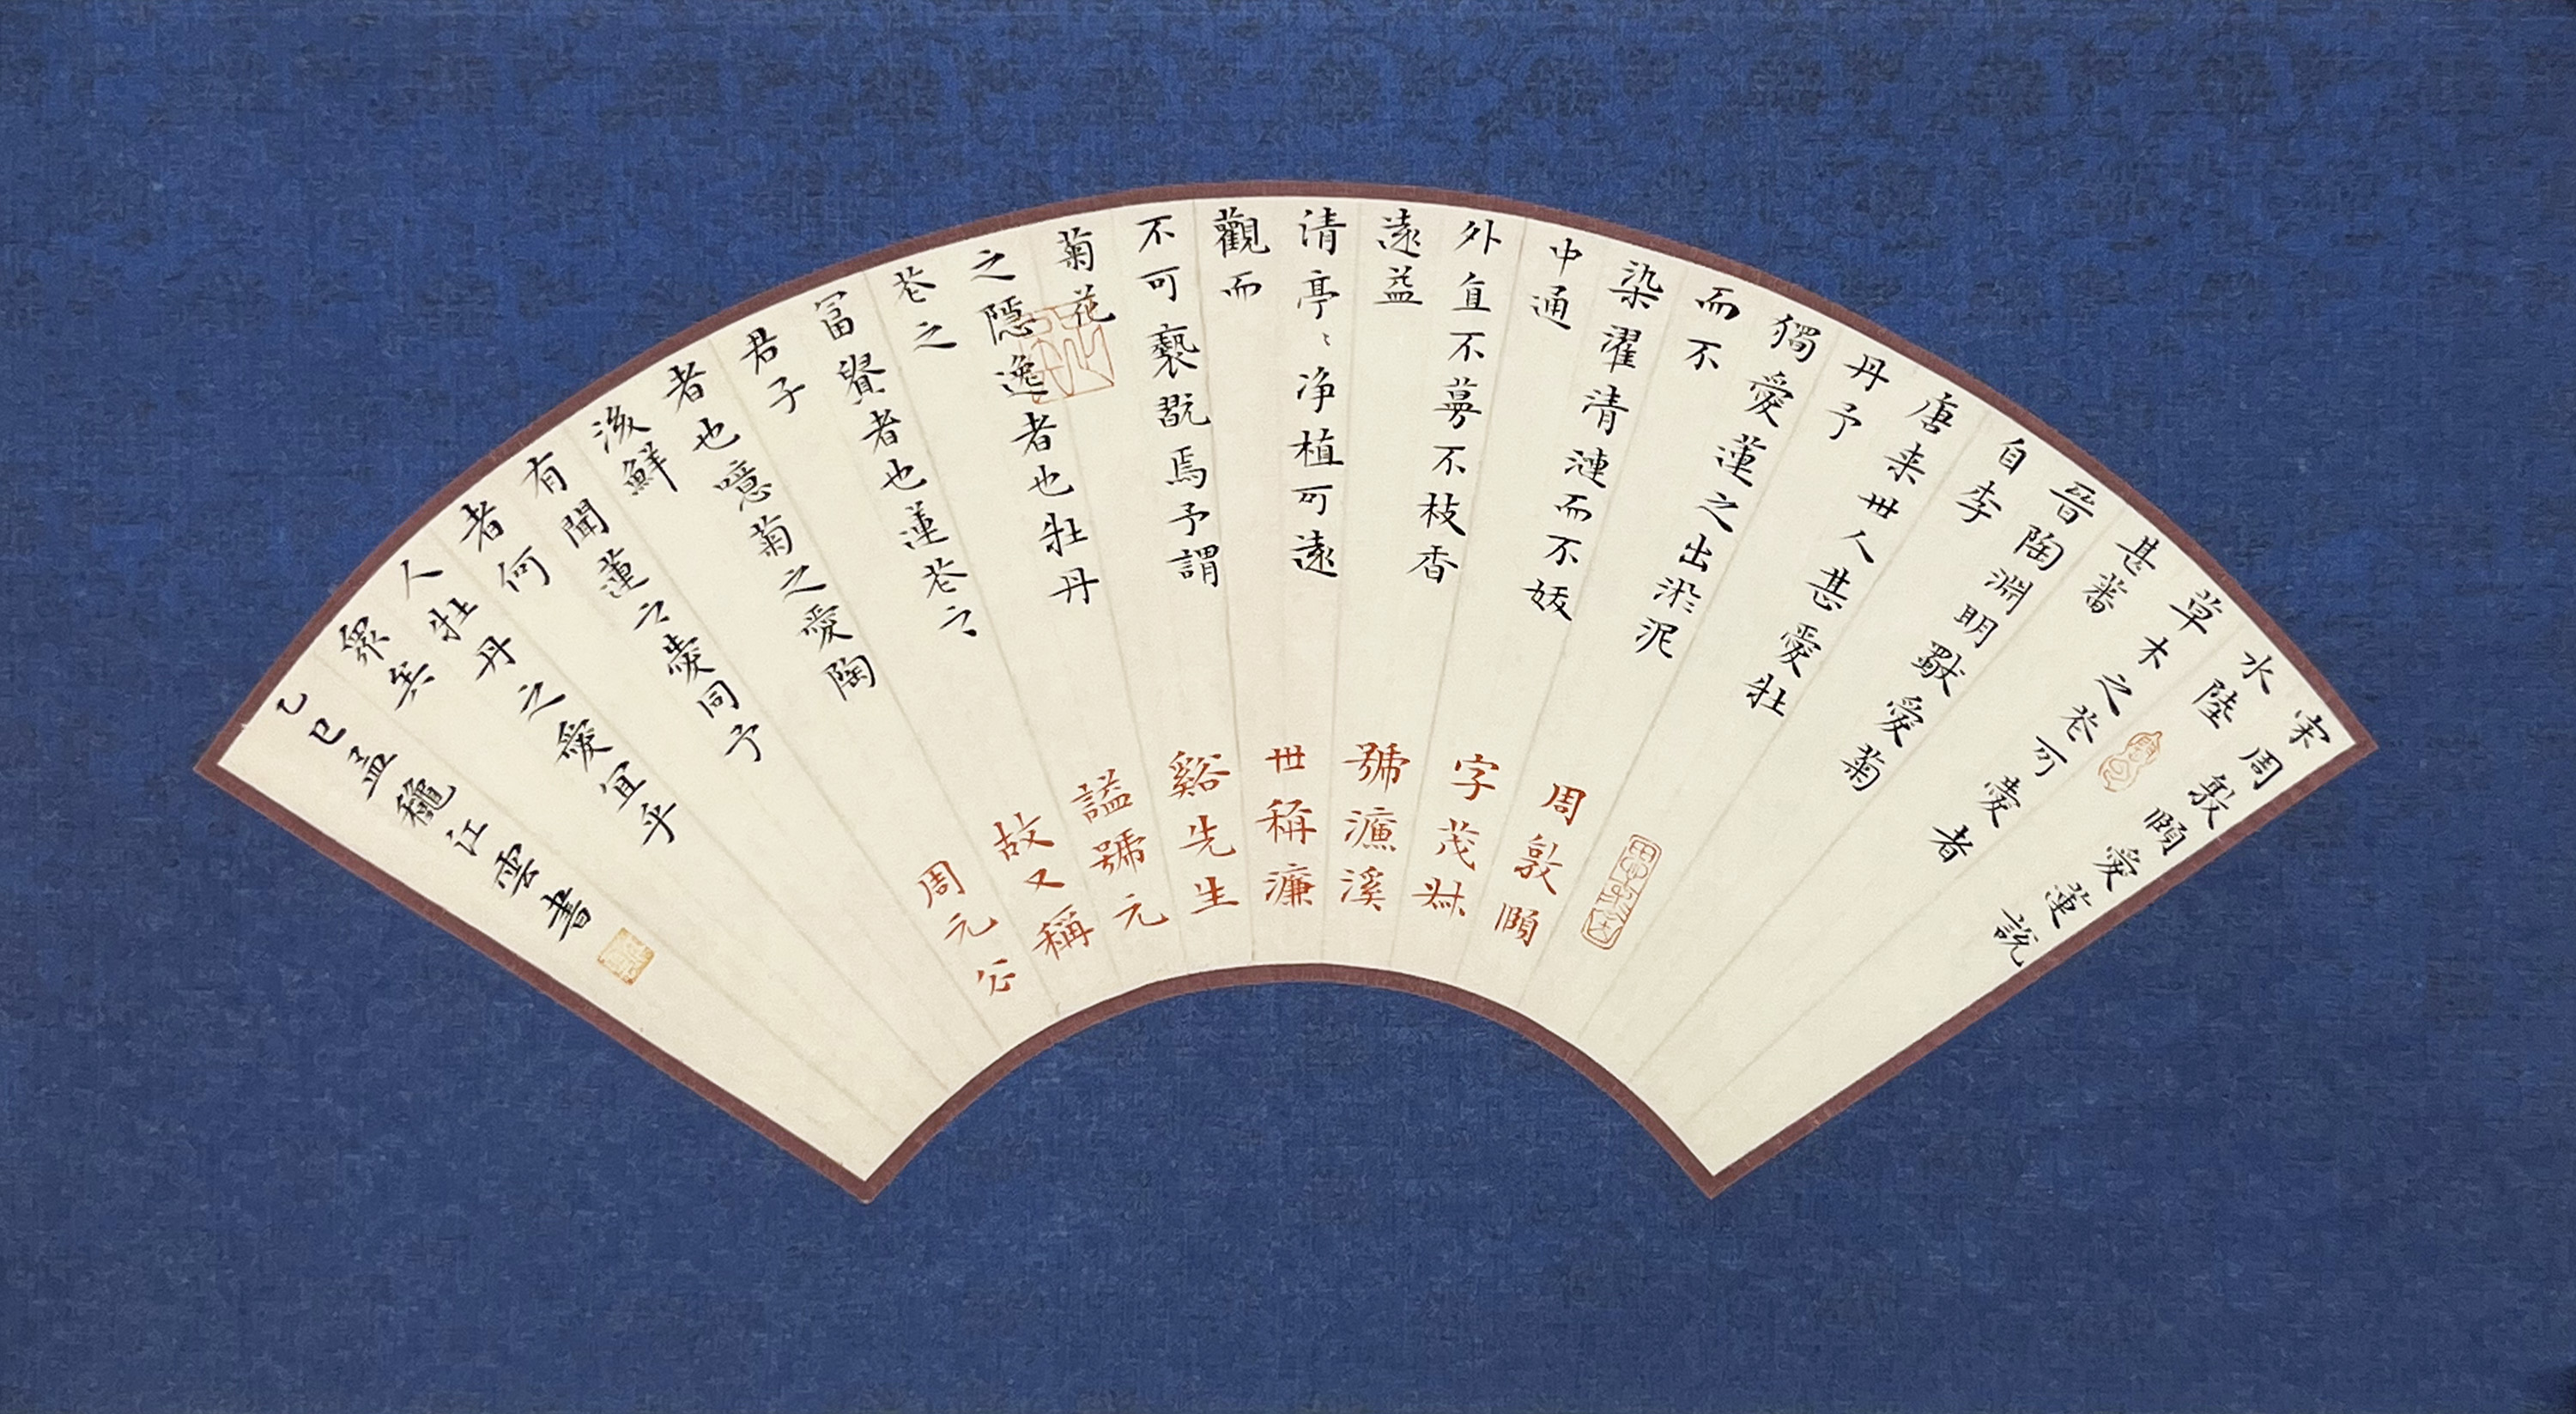 宋周敦頤愛蓮說
水陸
草木之芲可愛者
甚蕃
晉陶淵明獨愛菊
自李
唐来世人甚愛牡
丹予
獨愛蓮之出淤泥
而不
染濯清漣而不妖
中通
外直不蔓不枝香
遠益
清亭〻净植可遠
觀而
不可褻翫焉予謂
菊花
之隱逸者也牡丹
芲之
富貴者也蓮芲之
君子
者也噫菊之愛陶
後鮮
有聞蓮之愛同予
者何
人牡丹之愛宜乎
眾矣
乙巳孟穐江雲書
周敦頤
字茂叔
號濂溪
世稱濂
谿先生
諡號元
故又稱
周元公